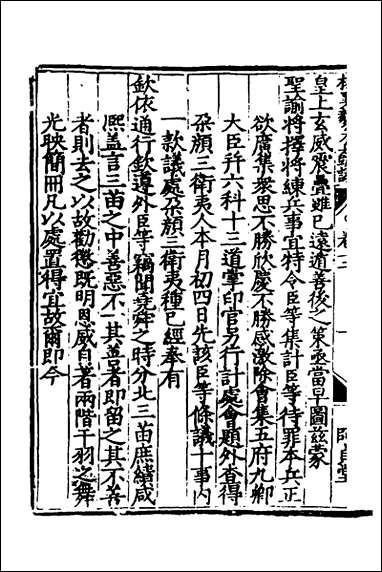 皇上玄威震疊雖已遠遁善後之策亟當早圖茲蒙
聖諭將擇將練兵事宜特令臣等集計臣等待罪本兵正
欲廣集衆思不勝欣慶不勝感激除會集五府九卿
大臣幷六科十三道掌印官另行計處會題外查得
朶顏三衛夷人本月初四日先該臣等條議十事內
一款議處朶顏三衛夷種已經奉有
欽依通行欽遵外臣等竊聞堯舜之時分北三苗庶績咸
熈盖言三苗之中善惡不一其善者即留之其不善
者則去之以故勸懲既明恩威自著兩階干羽之舞
光映簡冊凡以處置得宜故爾即今